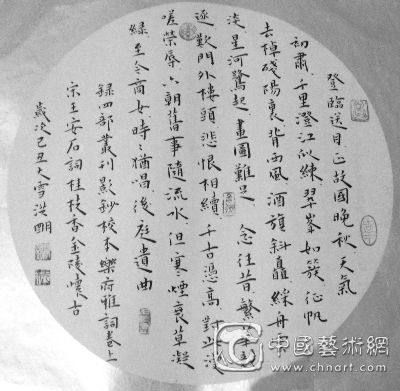 登臨送目正故國晚秋天氣
初肅千里澄江似練翠峯如簇征帆
去棹殘陽裏背西風酒旗斜矗綵舟雲
淡星河鷺起畫圖難足念往昔繁華競
逐歎門外樓頭悲恨相續千古憑高對此漫
嗟榮辱六朝舊事隨流水但寒煙衰草凝
綠至今商女時〻猶唱後庭遺曲
録四部叢刊影鈔校本樂府雅詞卷上
宋王安石詞桂枝香金陵懷古
歲次己丑大雪洪明
中國藝術網
www.chnart.com